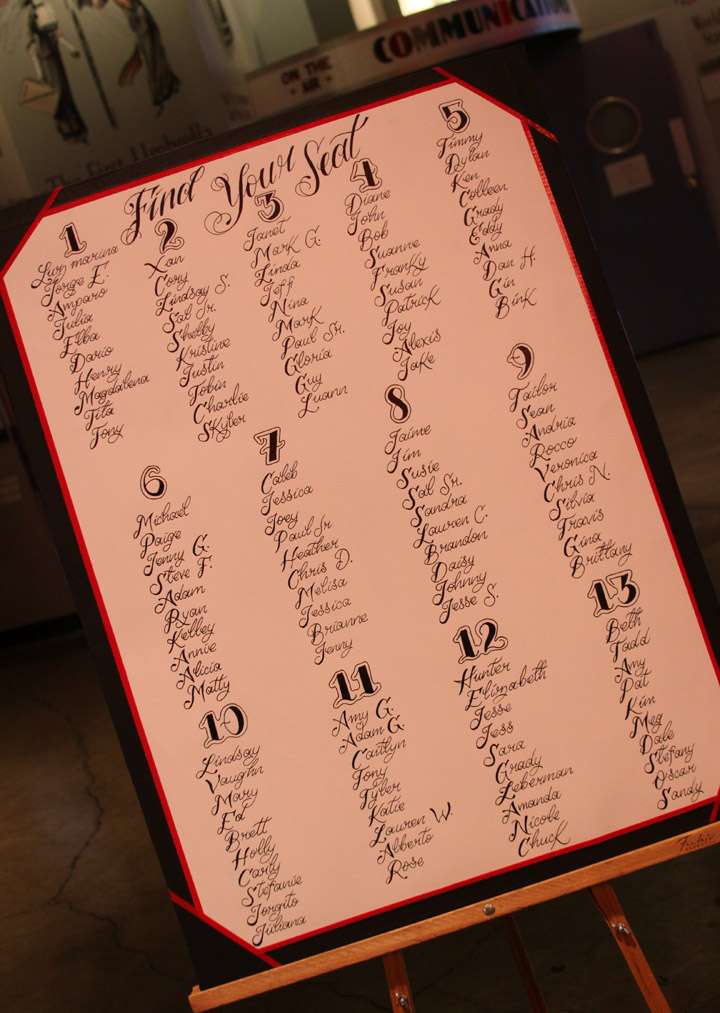 COMMUNICATION
ON THE
AIR
Find Your Seat
1
Luz marina
Jorge E.
Amparo
Julia
Elba
Dario
Henry
Magdalena
Tita
Tony
2
Xan
Cory
Lindsay S.
Sal Jr.
Shelby
Kristine
Justin
Tobin
Charlie
Skyler
3
Janet
Mark G.
Linda
Jeff
Nina
Mark
Paul Sr.
Gloria
Guy
Luann
4
Diane
John
Bob
Suanne
Franky
Susan
Patrick
Joy
Alexis
Jake
5
Jimmy
Dylan
Ken
Colleen
Grady
Eddy
Anna
Dan H.
Gin
Bink
6
Michael
Paige
Jenny G.
Steve F.
Adam
Ryan
Kelley
Annie
Alicia
Matty
7
Caleb
Jessica
Joey
Paul Jr
Heather
Chris D.
Melisa
Jessica
Brianne
Jenny
8
Jaime
Jim
Susie
Sal Sr.
Sandra
Lauren C.
Brandon
Daisy
Johnny
Jesse S.
9
Tailor
Sean
Andria
Rocco
Veronica
Chris N.
Silvia
Travis
Gina
Brittany
10
Lindsay
Vaughn
Mary
Ed
Brett
Holly
Carly
Stefanie
Jorgito
Juliana
11
Amy G.
Adam G.
Caitlyn
Tony
Tyler
Katie
Lauren W.
Alberto
Rose
12
Hunter
Elizabeth
Jesse
Jess
Sara
Grady
Leberman
Amanda
Nicole
Chuck
13
Beth
Todd
Amy
Pat
Kim
Meg
Dale
Stefany
Oscar
Sandy